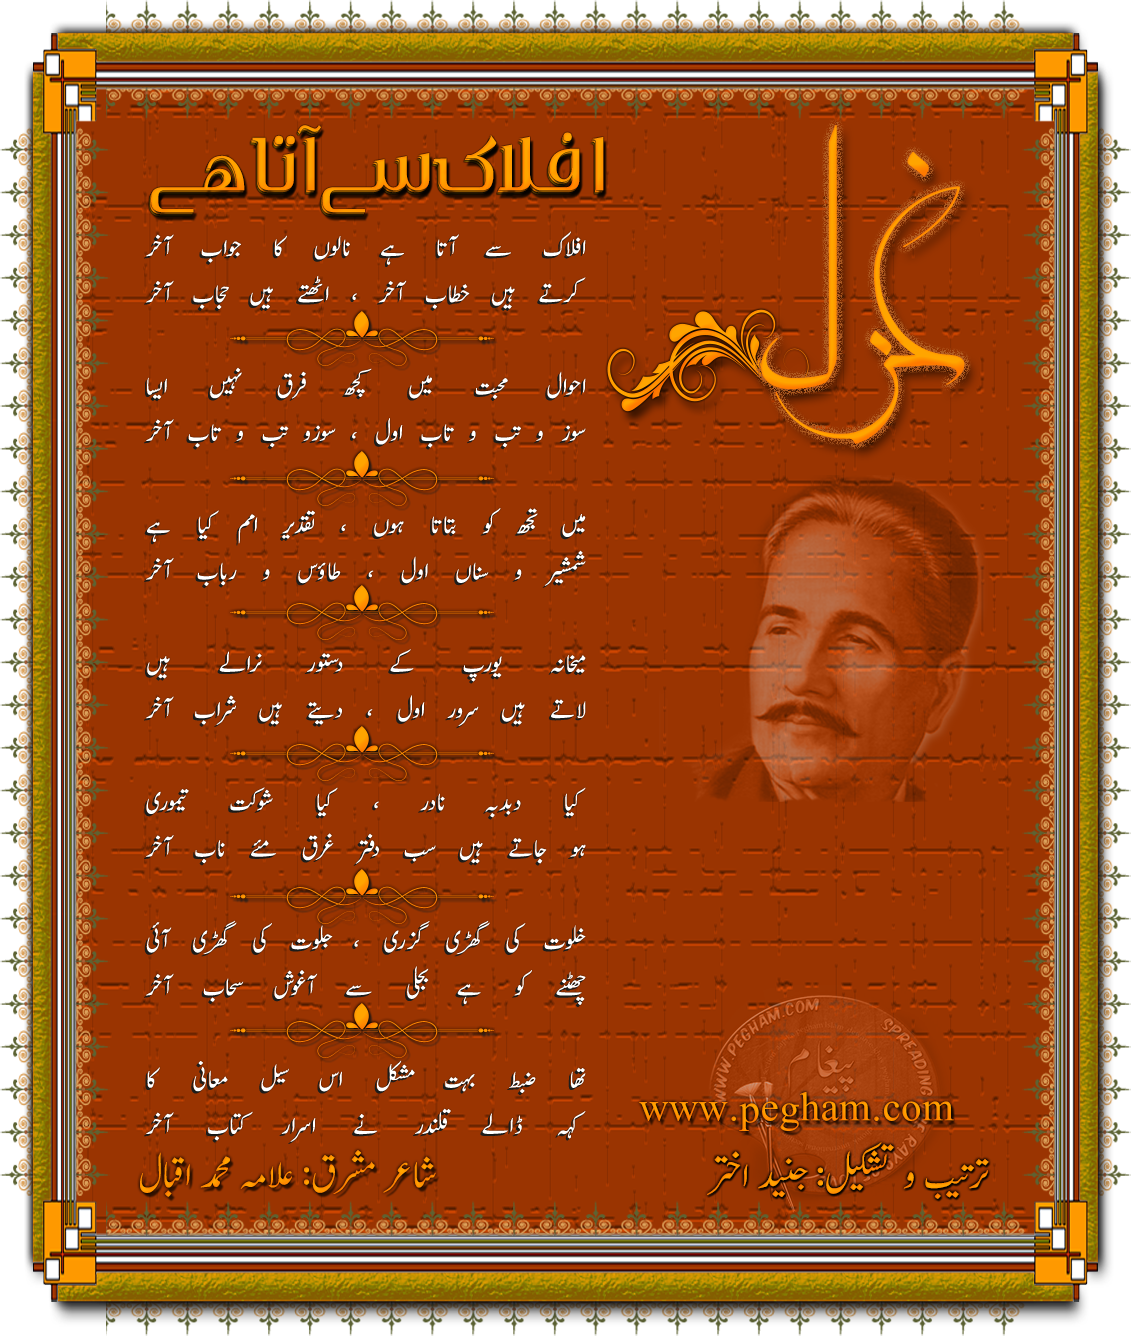 غزل
افلاک سے آتا ھے
افلاک سے آتا ہے نالوں کا جواب آخر
کرتے ہیں خطاب آخر ، اٹھتے ہیں حجاب آخر
احوال محبت میں کچھ فرق نہیں ایسا
سوز و تب و تاب اول ، سوزو تب و تاب آخر
میں تجھ کو بتاتا ہوں ، تقدیر امم کیا ہے
شمشیر و سناں اول ، طاؤس و رباب آخر
میخانہ یورپ کے دستور نرالے ہیں
لاتے ہیں سرور اول ، دیتے ہیں شراب آخر
کیا دبدبہ نادر ، کیا شوکت تیموری
ہو جاتے ہیں سب دفتر غرق مئے ناب آخر
خلوت کی گھڑی گزری ، جلوت کی گھڑی آئی
چھٹنے کو ہے بجلی سے آغوش سحاب آخر
تھا ضبط بہت مشکل اس سیل معانی کا
کہہ ڈالے قلندر نے اسرار کتاب آخر
شاعر مشرق: علامہ محمد اقبال
WWW.PEGHAM.COM
SPREADING
RAYS
پیغام
www.pegham.com
ترتیب و تشکیل: جنید اختر